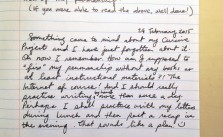 (If you were able to read the above, well done!)
24 February 2015
Something came to mind about my Curious
Project and I have just forgotten about it.
Oh now I remember. How am I supposed to
"fire" my personality without any books or
at least instructional materials?! The
Internet of course! And I should really
practice writing more than once a day.
Perhaps I shall practice with my letters
during lunch and then past a recap in
the evening. That sounds like a plan